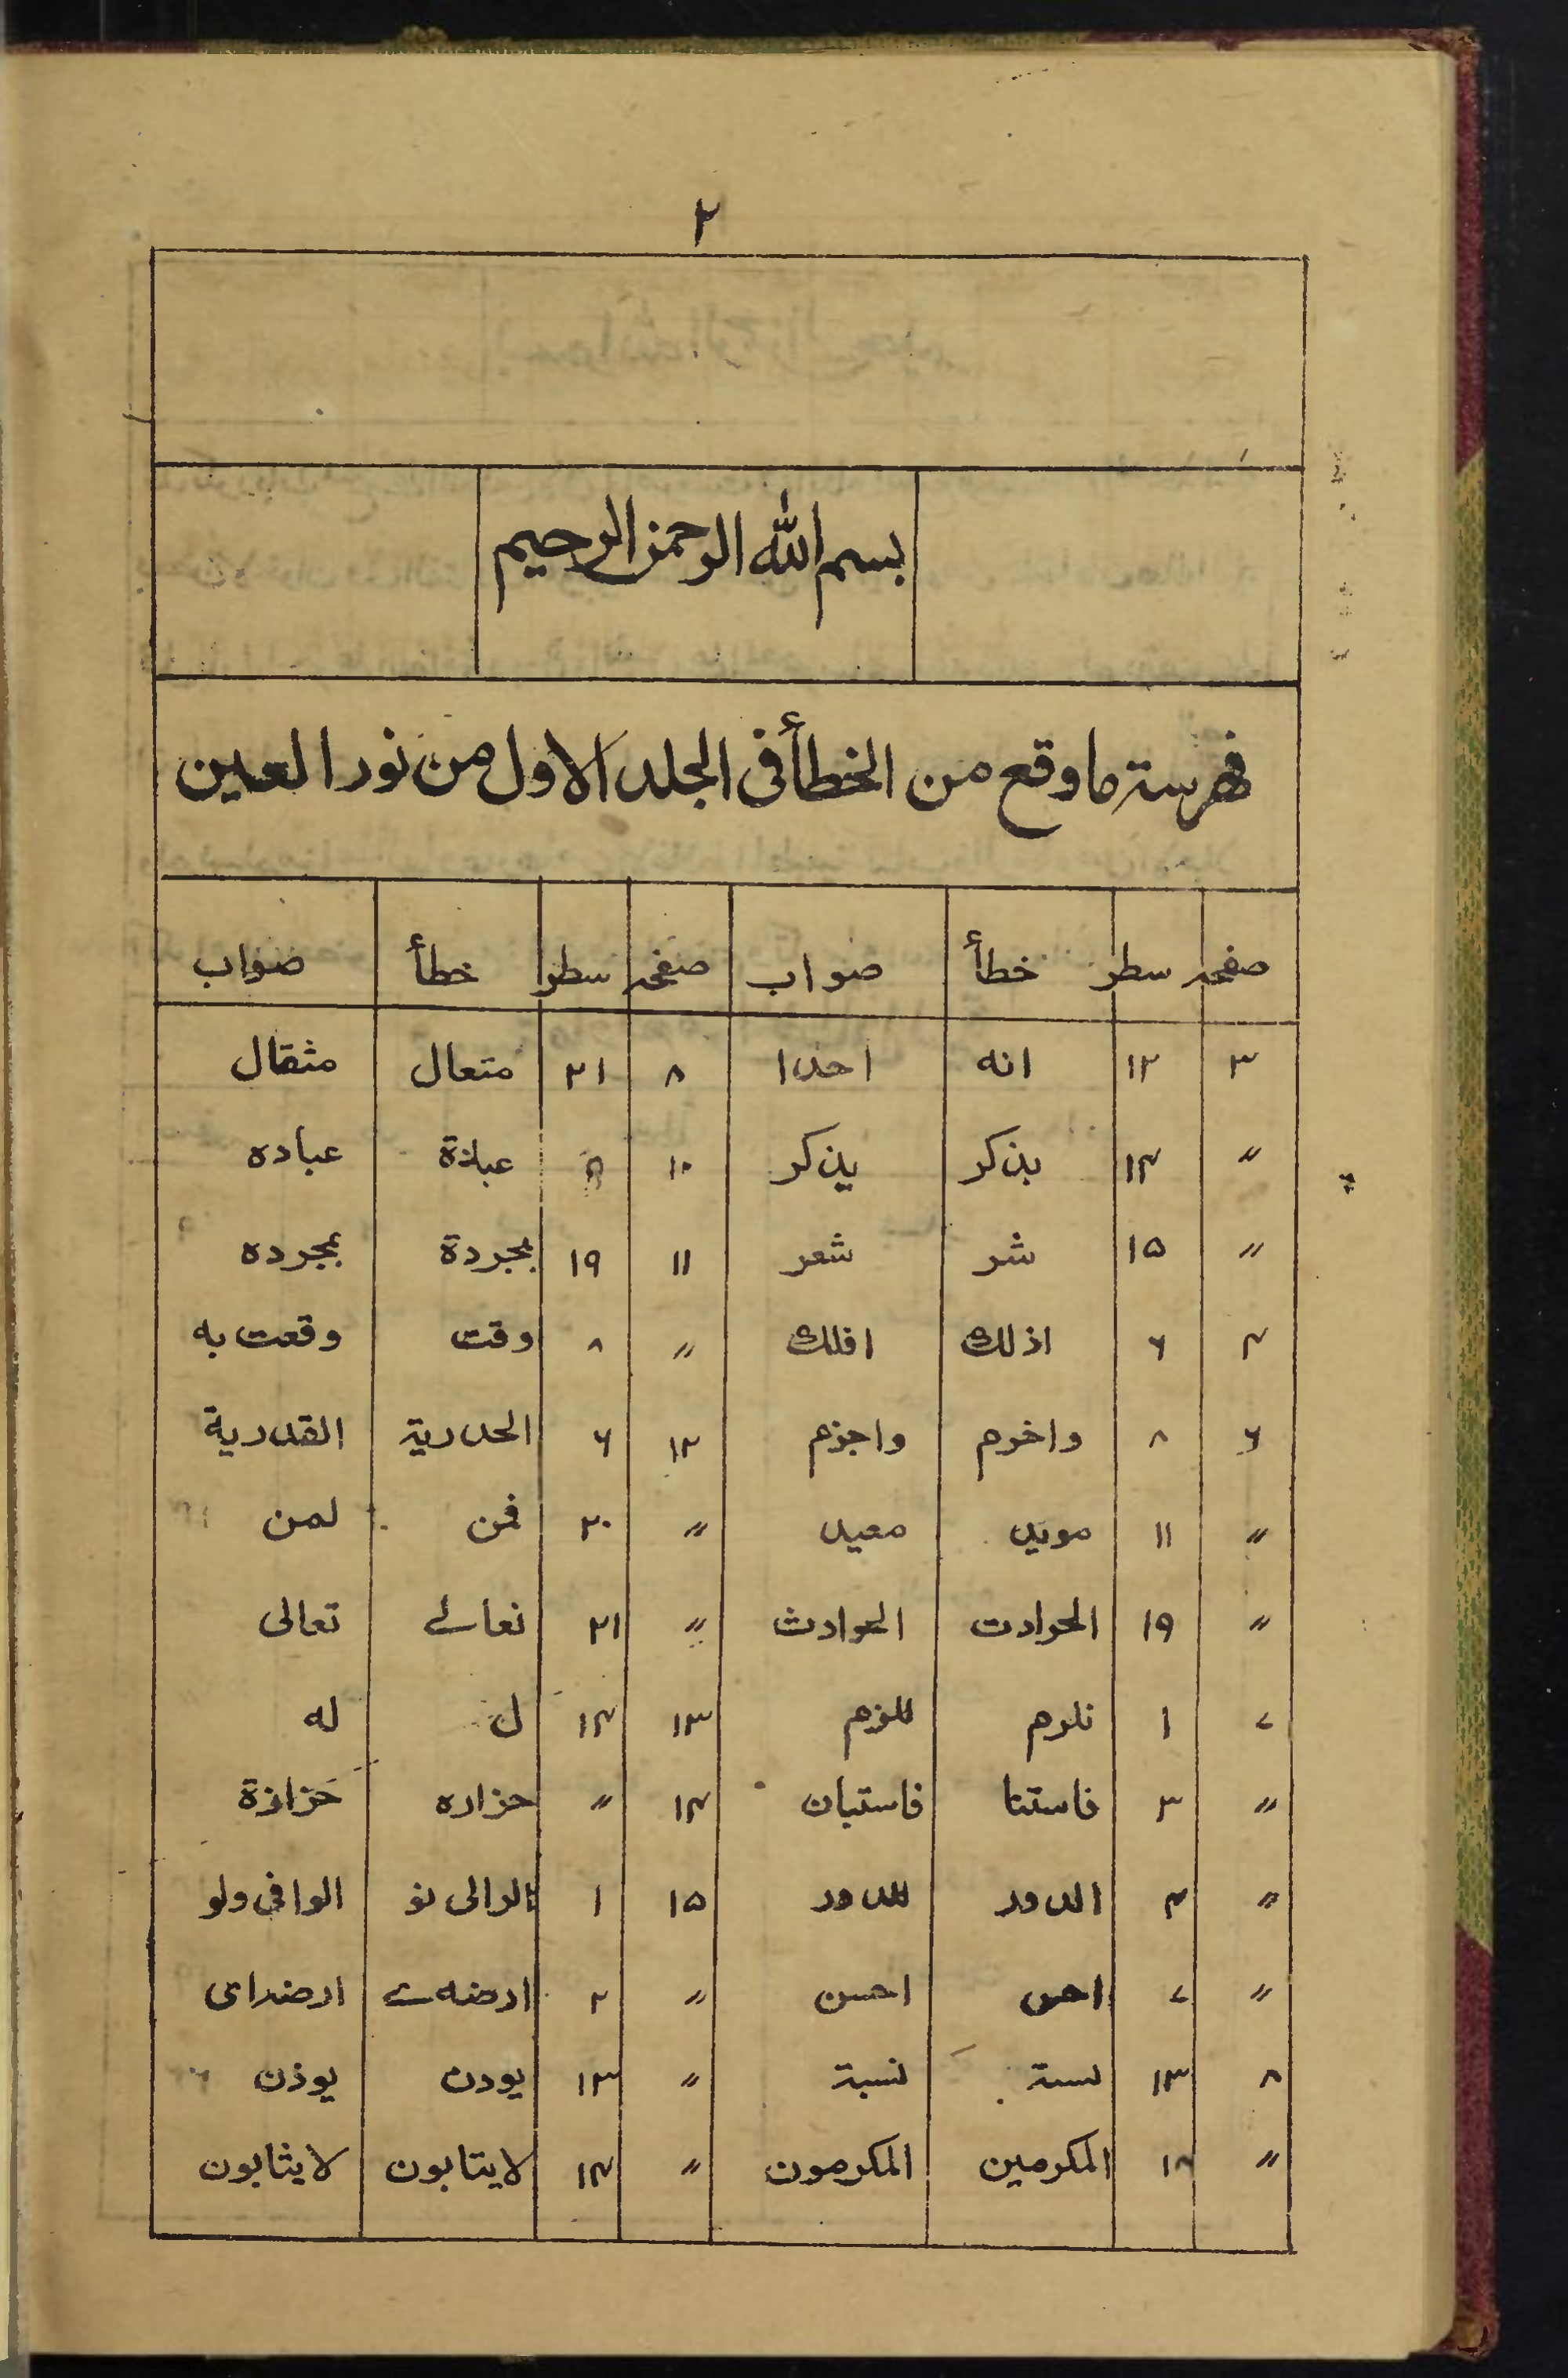 ٢
بسم الله الرحمن الرحيم
فهرسته ما وقع من الخطأ فى الجلد الاول من نور العين
صفحه سطر خطأ صواب صفحه سطر خطأ صواب
٣ ١٢ انه احدا ٨ ٢١ متعال مثقال
〃 ١٤ بذكر يذكر ١٠ عبادة عباده
〃 ١٥ شر شعر ١١ ١٩ بجردة بمجرده
٤ ٦ اذلك افلك 〃 ٨ وقت وقعت به
٦ ٨ واخرم واجزم ١٢ ٦ الحدرية القدرية
〃 ١١ مويد معيد 〃 ٢٠ فمن لمن
〃 ١٩ الحوادت الحوادث 〃 ٢١ نعالے تعالى
٧ ١ نلرم للزم ١٣ ١٤ ل له
〃 ٣ فاستنا فاستبان ١٤ 〃 حزاره حزازة
〃 ٤ الدور للدور ١٥ ١ الوافى ولو
〃 ٧ احس احسن 〃 ٢
٨ ١٣ لسىة نسبة 〃 ١٣ يودن يوذن
〃 ١٨ المكرمين المكرمون 〃 ١٤ لايتابون لايثابون